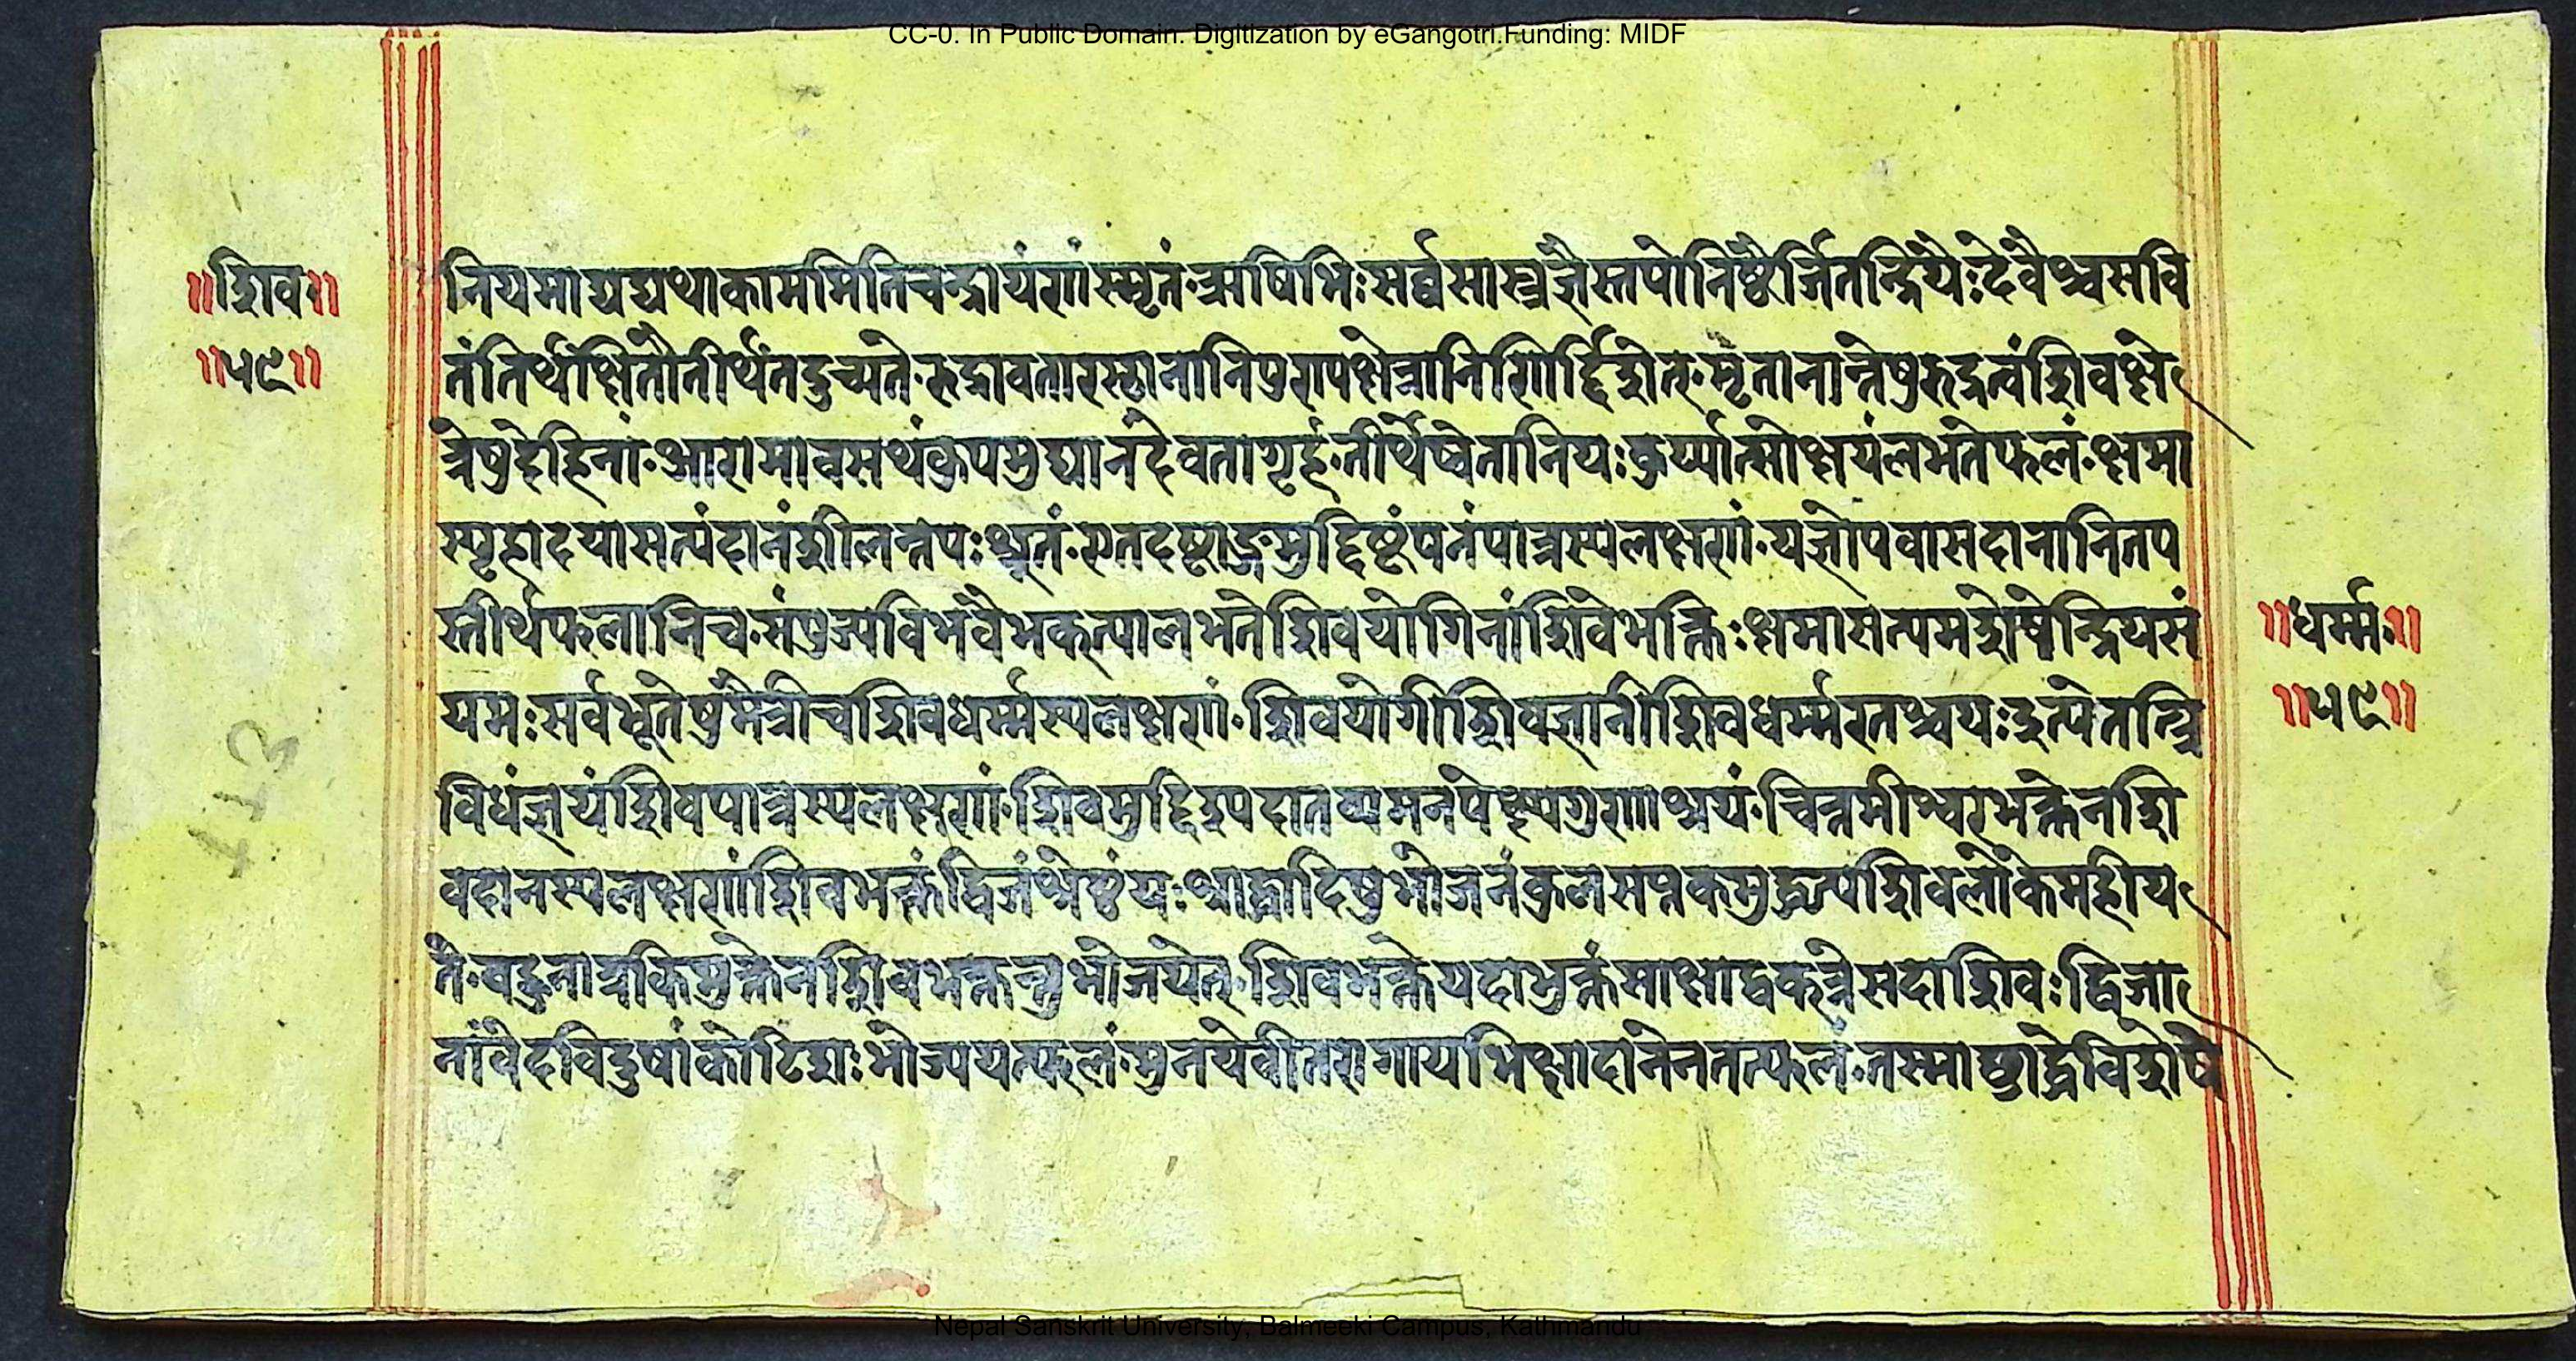 CC-0. In Public Domain. Digitization by eGangotri.Funding: MIDF
॥शिव॥
॥५९॥
नियमाद्यद्यथाकाममितिचन्द्रायणंस्मृतं·ऋषिभिःसर्व्वसास्त्रज्ञैस्तपोनिष्ठैर्जितन्द्रियैःदेवैश्चसवि
तंतिर्थंक्षितौतीर्थंतदुच्यते·रुद्रावतारस्थानानिपुण्यक्षेत्रानिनिर्द्दिशेत्·मृतानान्तेषुरुद्रत्वंशिवक्षे
त्रेषुदेहिनां·आरामावसथंकूपमुद्यानंदेवतागृहं·तीर्थेष्वेतानियःकुर्य्यात्सोक्षयंलभतेफलं·क्षमा
स्पृहादयासत्यंदानंशीलन्तपःश्रुतं·एतदष्टाङ्गमुद्दिष्टंपनंपात्रस्यलक्षणं·यज्ञोपवासदानानितप
स्तीर्थफलानिच·संपूज्यविभवैभक्त्यालभतेशिवयोगिनांशिवेभक्तिःक्षमासत्यमशेषेन्द्रियसं
यमःसर्वभूतेषुमैत्रीचशिवधर्म्मस्यलक्षणं·शिवयोगीशिवज्ञानीशिवधर्म्मरतश्चयःइत्येतत्त्रि
विधंज्ञेयंशिवपात्रस्यलक्षणं·शिवमुद्दिश्यदातव्यमनपेक्ष्यगुणाश्रयं·चित्तमीश्वरभक्तेनशि
वदानस्यलक्षणंशिवभक्तंद्विजंश्रेष्ठंयःश्राद्धादिषुभोजनंकुलसप्तकमुद्धृत्यशिवलोकेमहीय
ते·बहुनात्रकिमुक्तेनशिवभक्तन्तुभोजयेत्·शिवभक्तेयदाभुक्तंसाक्षाद्वक्त्रेसदाशिवःद्विजा
नांवेदविदुषांकोटिशःभोज्ययत्फलं·मुनयेवीतरागायभिक्षादानेनतत्फलं·तस्माच्छ्राद्धेविशेषे
॥धर्म्म॥
॥५९॥
113
Nepal Sanskrit University, Balmeeki Campus, Kathmandu